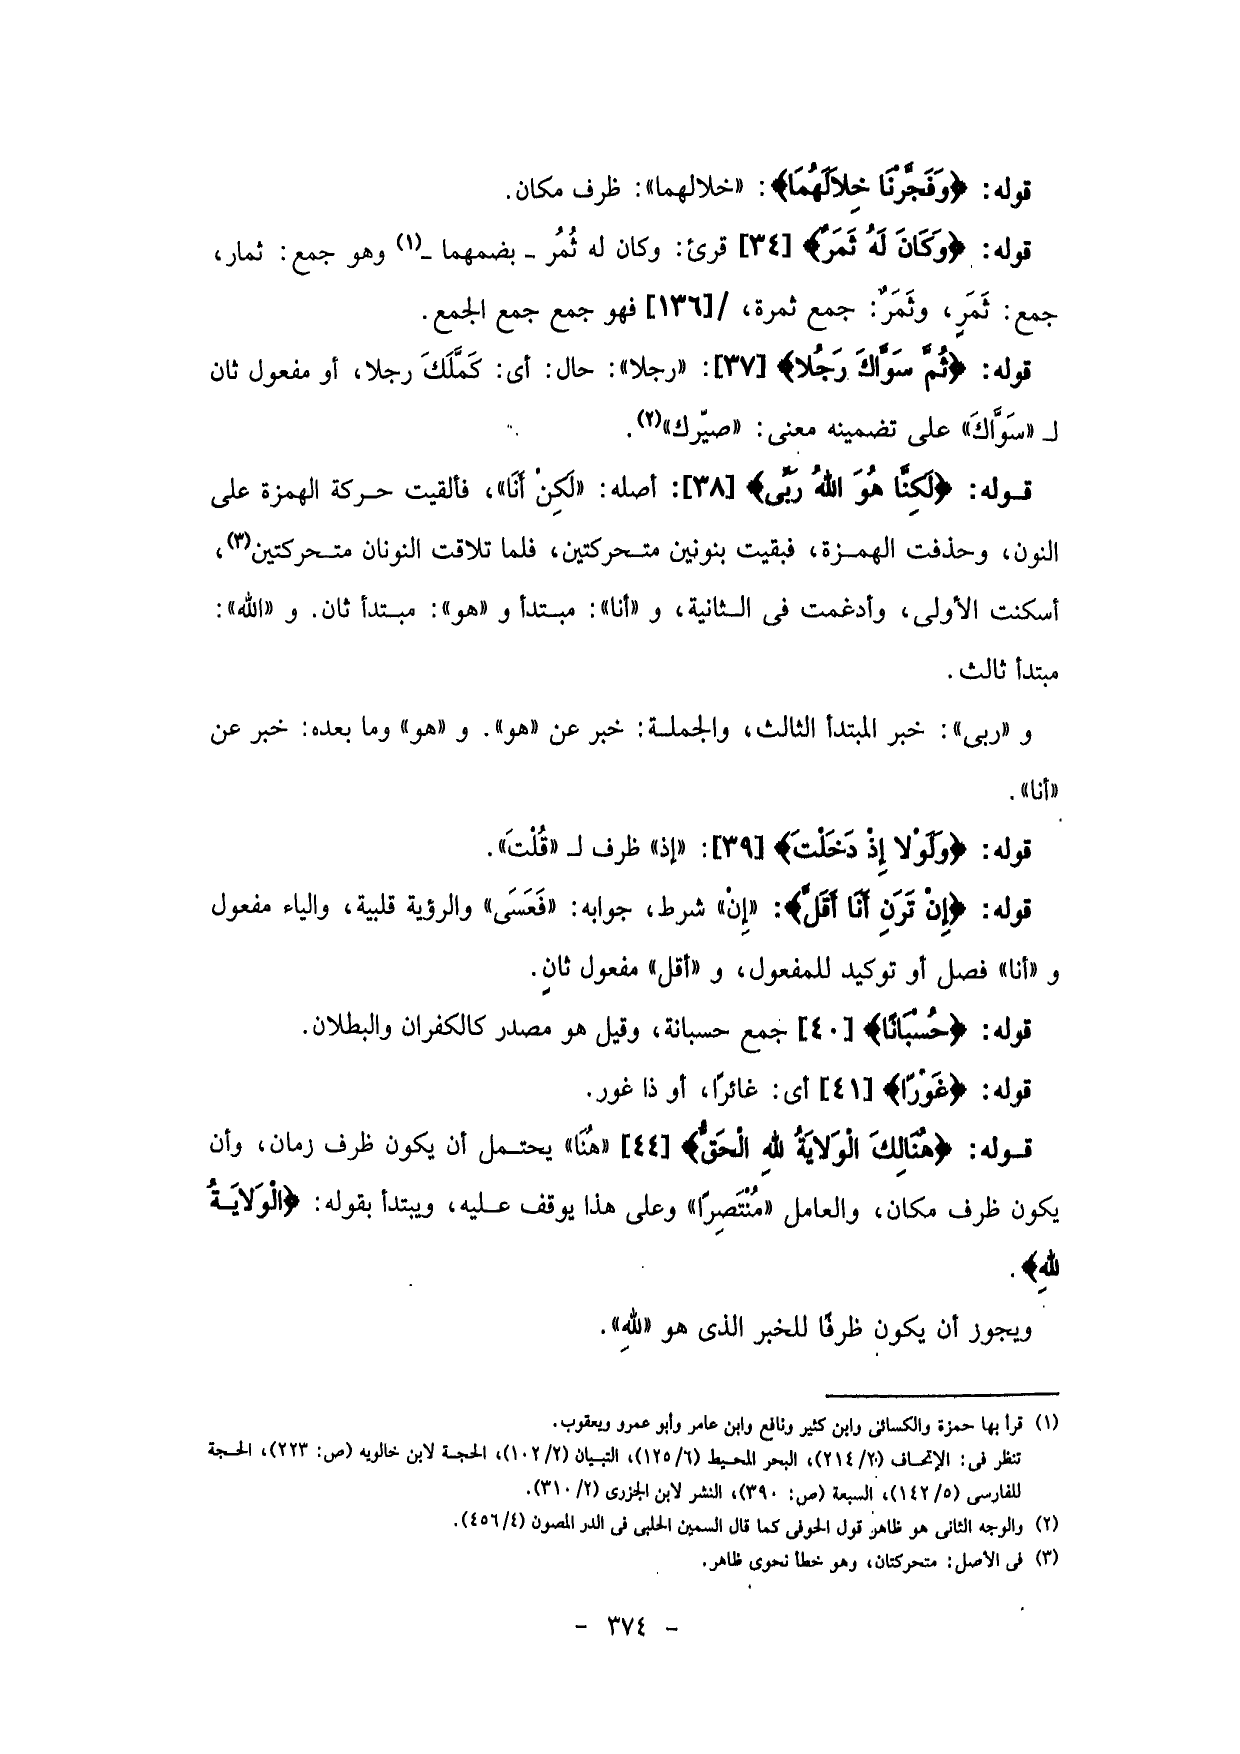 قوله: ﴿وَفَجَّرْنَا خِلاَلَهُمَا﴾: «خلالهما»: ظرف مكان.
قوله: ﴿وَكَانَ لَهُ ثَمَرٌ﴾ [٣٤] قرئ: وكان له ثُمُر ـ بضمهما ـ(١) وهو جمع: ثمار،
جمع: ثَمَرٍ، وثَمَرٌ: جمع ثمرة، /[١٣٦] فهو جمع جمع الجمع.
قوله: ﴿ثُمَّ سَوَّاكَ رَجُلا﴾ [٣٧]: «رجلا»: حال: أى: كَمَّلَكَ رجلا، أو مفعول ثان
لـ «سَوَّاكَ» على تضمينه معنى: «صيّرك»(٢).
قوله: ﴿لَكِنَّا هُوَ اللهُ رَبِّى﴾ [٣٨]: أصله: «لَكِنْ أَنَا»، فألقيت حركة الهمزة على
النون، وحذفت الهمزة، فبقيت بنونين متحركتين، فلما تلاقت النونان متحركتين(٣)،
أسكنت الأولى، وأدغمت فى الثانية، و «أنا»: مبتدأ و «هو»: مبتدأ ثان. و «الله»:
مبتدأ ثالث.
و «ربى»: خبر المبتدأ الثالث، والجملة: خبر عن «هو». و «هو» وما بعده: خبر عن
«أنا».
قوله: ﴿وَلَوْلا إِذْ دَخَلْتَ﴾ [٣٩]: «إذ» ظرف لـ «قُلْتَ».
قوله: ﴿إِنْ تَرَنِ أَنَا أَقَلَّ﴾: «إِنْ» شرط، جوابه: «فَعَسَى» والرؤية قلبية، والياء مفعول
و «أنا» فصل أو توكيد للمفعول، و «أقل» مفعول ثانٍ.
قوله: ﴿حُسْبَانًا﴾ [٤٠] جمع حسبانة، وقيل هو مصدر كالكفران والبطلان.
قوله: ﴿غَوْرًا﴾ [٤١] أى: غائرًا، أو ذا غور.
قوله: ﴿هُنَالِكَ الْوَلايَةُ للهِ الْحَقُّ﴾ [٤٤] «هُنَا» يحتمل أن يكون ظرف زمان، وأن
يكون ظرف مكان، والعامل «مُنْتَصِرًا» وعلى هذا يوقف عليه، ويبتدأ بقوله: ﴿الْوَلايَةُ
للهِ﴾.
ويجوز أن يكون ظرفًا للخبر الذى هو «للهِ».
(١) قرأ بها حمزة والكسائى وابن كثير ونافع وابن عامر وأبو عمرو ويعقوب.
تنظر فى: الإتحاف (٢١٤/٢)، البحر المحيط (١٢٥/٦)، التبيان (١٠٢/٢)، الحجة لابن خالويه (ص: ٢٢٣)، الحجة
للفارسى (١٤٢/٥)، السبعة (ص: ٣٩٠)، النشر لابن الجزرى (٣١٠/٢).
(٢) والوجه الثانى هو ظاهر قول الحوفى كما قال السمين الحلبى فى الدر المصون (٤٥٦/٤).
(٣) فى الأصل: متحركتان، وهو خطأ نحوى ظاهر.
- ٣٧٤ -